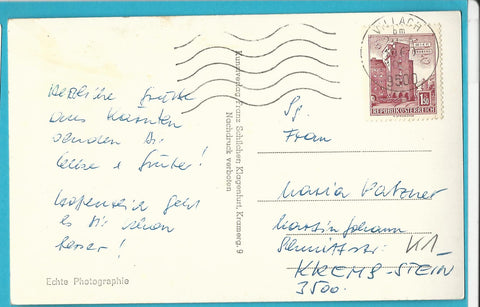 Herzliche Grüße
aus Kärnten
senden Dir
&
Hoffentlich geht
es Dir schon
besser!
Echte Photographie
Kunstverlag Franz Schilcher, Klagenfurt, Kramerg. 9
Nachdruck verboten
VILLACH
9500
1.50
REPUBLIK ÖSTERREICH
Frau
Maria
Martin Johann
Schmidtstr.
KREMS-STEIN
3500.